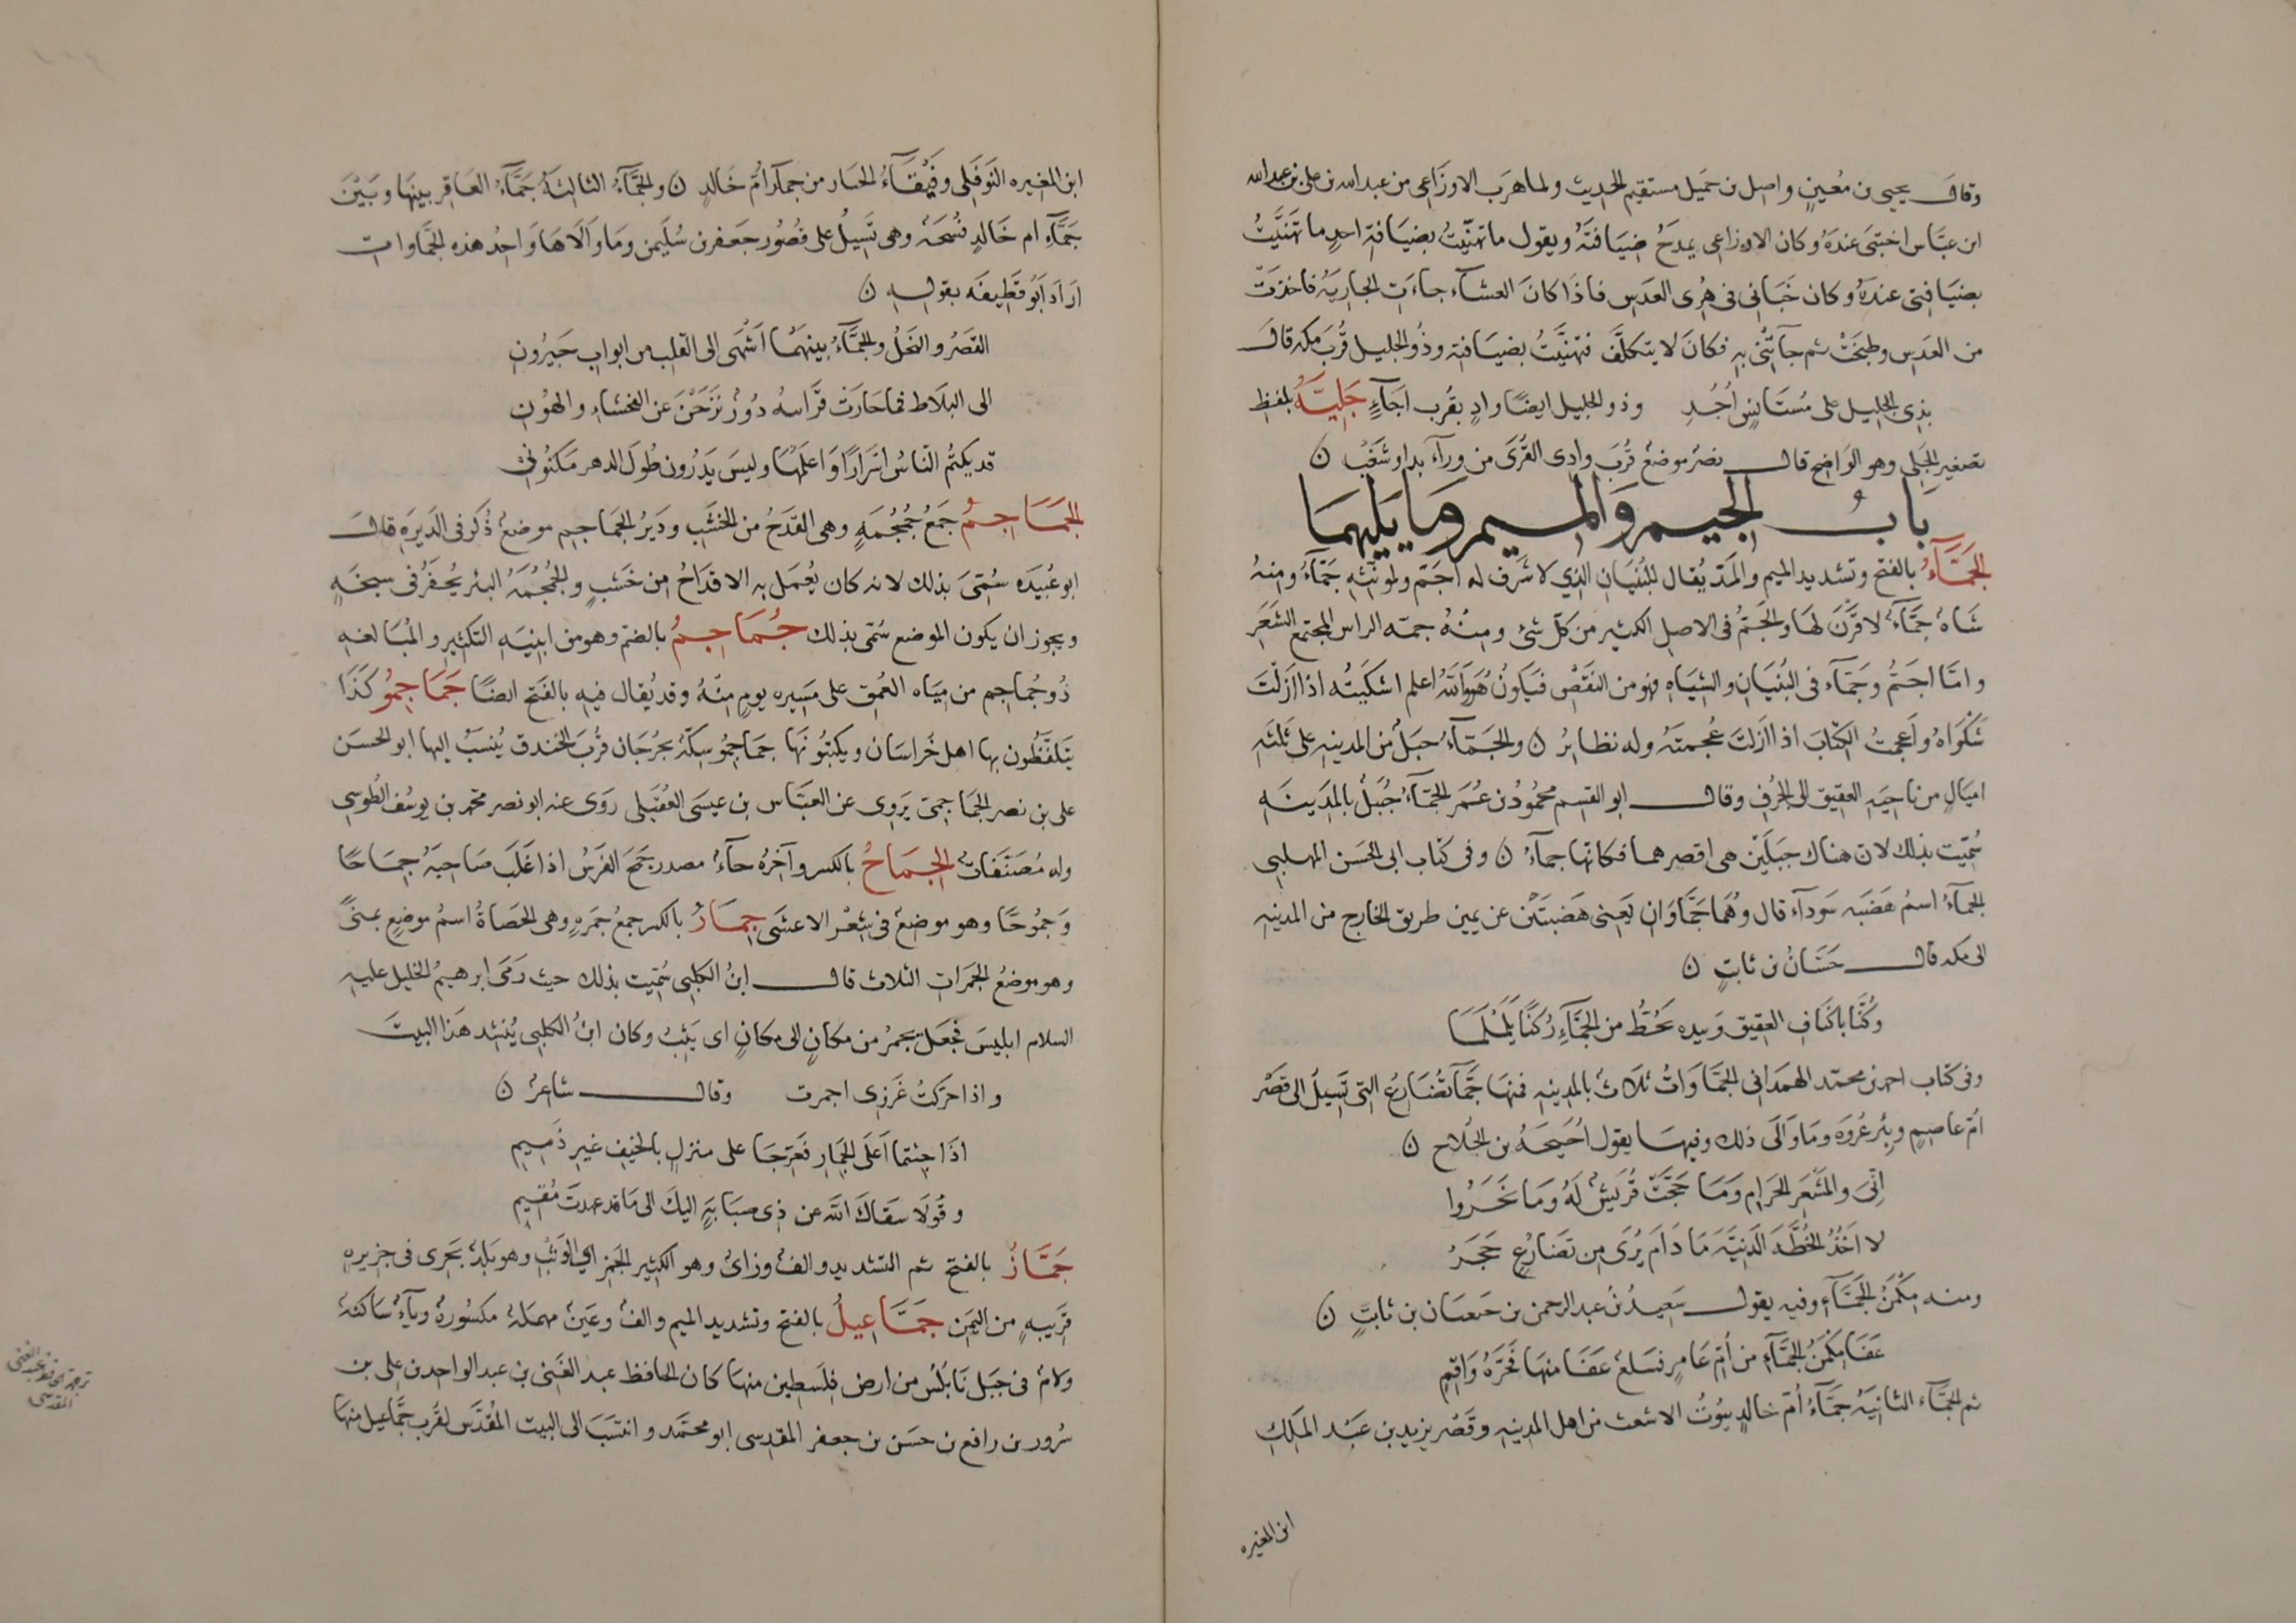 وقال يحيى بن مُعين واصل بن جميل مستقيم الحديث ولما هرب الاوزاعى من عبد الله بن على بن عبد الله
ابن عبّاس اختبى عنده وكان الاوزاعى يمدحُ ضيافتَهُ ويقول ما تهنّيتُ بضيافة احدٍ ما تهنّيتُ
بضيافتى عندهُ وكان خبانى فى هُرى العدس فاذا كان العشآء جاءت الجارية فاخذت
من العدس وطبخت ثم جآءتنى به فكان لا يتكلّف فتهنّيتُ بضيافته وذُو الجليل قُربَ مكه قال
بذى الجليل على مُستانسٍ اُحُدِ وذو الجليل ايضًا وادٍ بقُرب اجآءٍ جَلِيَّةُ بلفظ
تصغير الجَلى وهو الواضح قال نصرٌ موضعٌ قُربَ وادى القُرَى من ورآء بدا وشغب ن
بابُ الجيم والميم وما يليهما
الجَمَّآءُ بالفتح وتشديد الميم والمدّ يُقال للبُنيان الذي لا شَرف له اجَمّ ولمونّثهِ جَمّآءُ ومنهُ
شاةٌ جمَّآءُ لا قَرْنَ لها والجَمُّ فى الاصل الكثير من كلّ شئ ومنْهُ جمّه الراس المجتمع الشَعَر
وامّا اجَمُّ وجَمّآء فى البُنيان والشياه فهو من النَقْصْ فيكُونُ هُوَ والله اعلم اشكَيتُه اذا ازلتَ
شَكْوَاهُ واَعجمتُ الكتابَ اذا ازلتَ عُجمتَهُ وله نظايرُ ن والجَمّآءُ جبلٌ من المدينه على ثلثه
اميالٍ من ناحيَه العقيق الى الجُرف وقال ابو القسم محمُودُ بن عُمَر الجَمّآءُ جُبَيلٌ بالمدينه
سُمّيت بذلك لان هناك جبلَين هى اقصرهما فكانها جمآءُ ن وفى كتاب ابى الحسَن المهلبى
الجمآءُ اسمُ هَضبَه سَودآء قال وهُما جَمّاوان يَعنى هَضبتَين عن يمين طريق الخارج من المدينه
الى مكه قال حسّانُ بن ثابتٍ ن
وكُنّا باكناف العقيق وبيده نحُطُّ من الجَمّآءِ رُكنًا يلَمْلَما
وفى كتاب احمد بن محمّد الهمدانى الجمّاوَاتُ ثلاثٌ بالمدينه فمنها جَمّآ تُضَارُع التى تسِيلُ الى قصْر
اُمّ عاصِم وبِئر عُروَه وما وَالَى ذلك وفيها يقول اُحَيحَهُ بن الجُلاح ن
اِنّىَ والمَشعَر الحَرام وَمَا حَجّتْ قُرَيشٌ لَهُ ومَا نَحَرُوا
لا اخُذُ الخُطّة الدنيَّة ما دَامَ يُرَى من تَضَارُعٍ حَجَرُ
ومنه مكْمَنُ الجَمّآءِ وفيه يقول سعيدُ بنُ عبد الرحمن بن حسان بن ثابتٍ ن
عَفَا مَكمَنُ الجَمّآءِ من اُمّ عامرٍ فسَلعٌ عَفَا منها فَحَرّهُ وَاقِمِ
ثم الجمّآء الثانيَهُ جَمّآءُ اُمّ خالدٍ بيُوتُ الاشعث من اهل المدينه وقَصْرِ يزيد بن عَبْد المَلِكِ
ابن المغيره
ابن المغيره النَوفَلى وفيفَآءُ الخبار من جمآء اُمّ خَالدٍ ن والجَمّآءُ الثالثةُ جَمّآءُ العَاقر بينها وبيْنَ
جَمّآءِ ام خَالدٍ فُسْحَهٌ وهى تَسِيلُ على قصُور جعفر بن سُليمن وما وَالَاها وَاحدُ هذه الجَمّاوات
اَرادَ اَبُو قَطِيفَه بقوله ن
القَصرُ والنخلُ والجَمّآءُ بينهُما اَشْهى الى القلب من ابواب جَيرُونِ
الى البلاط فما حَارَت قَرَّاسهُ دُورٌ نَزَحْنَ عن الفحشاءِ والهُونِ
قد يكتُم النّاسُ اسْرارًا وَاعلمُها وليسَ يَدرُون طُول الدهر مكنُونِى
الجَمَاجِمُ جَمْعُ جُمجُمَهٍ وهى القدَحُ من الخشَبِ ودَيرُ الجَماجم موضعٌ ذُكر فى الدَيرَهِ قال
ابو عُبَيدَه سُمّىَ بذلك لانه كان يُعْمَل به الاقدَاحُ من خَشَبٍ والجُمجُمَهُ البئر يُحفَرُ فى سبخَهٍ
ويجوز ان يكون الموضع سُمّى بذلك جُمَاجِمُ بالضمّ وهو من ابنيه التكثير والمُبَالغه
ذُو جُماجم من مياه العُمق على مَسيره يومٍ منْهُ وقد يُقال فيه بالفَتح ايضًا جَمَاجِمُو كَذَا
يَتلفّظُون بها اهل خُراسان ويكتبُونهَا جَماجِمُو سِكّهٌ بجُرْجَان قُربَ الخندق يُنسَبُ اليها ابو الحسَن
على بن نصر الجَماجمىّ يَروِى عن العبّاس بن عيسَى العُقَيلى روَى عنه ابو نصر محمّد بن يوسُف الطُوسى
وله مُصنَفاتٌ الجِمَاحُ بالكسر وآخِرُهُ حآءُ مصدر جمَحَ الفَرَسُ اذا غَلَبَ صَاحبَهُ جِمَاحًا
وَجمُوحًا وهو موضعٌ فى شِعْر الاعشَى جِمَارٌ بالكسر جمعُ جمَرهٍ وهى الحصَاةُ اسمُ موضعٍ بمنًى
وهو موضعُ الجمَرات الثلاث قال ابنُ الكلبى سُمّيت بذلك حيث رَمَى ابرهيمُ الخليل عليه
السلام ابليسَ فجعَلَ يجمرُ من مكانٍ الى مكانٍ اى يَثِبُ وكان ابنُ الكلبى يُنشد هَذا البيتَ
واذا حرّكتُ غَرزِى اجمرت وقال شاعرٌ ن
اذَا جئتما اَعلَى الجِمَارِ فعَرّجَا على منزلٍ بالخيف غير ذَميمِ
وقُولَا سقاكَ الله عن ذِى صبَابَةٍ اليكَ الى ما قد عهدتَ مُقيمِ
جَمَّازٌ بالفتح ثم التشديد والفٌ وزائٌ وهو الكثير الجَمزِ اى الوَثْبِ وهو بَلدٌ بَحرِى فى جزيره
قَريبهٍ من اليَمَن جَمَّاعِيلُ بالفتح وتشديد الميم والفٌ وعَينٌ مهملهٌ مكسُورةٌ ويآءٌ ساكنهٌ
ولامٌ فى جبَل نَابُلُسَ من ارض فِلسطين منها كان الحافظ عبد الغَنى بن عبد الواحد بن على بن
سُرور بن رافع بن حسَن بن جعفر المقدسى ابو محمّد وانتسَبَ الى البيت المُقدّس لقُرب جَمّاعيل منها
ترجمة الحافظ عبد الغنى
المقدسى